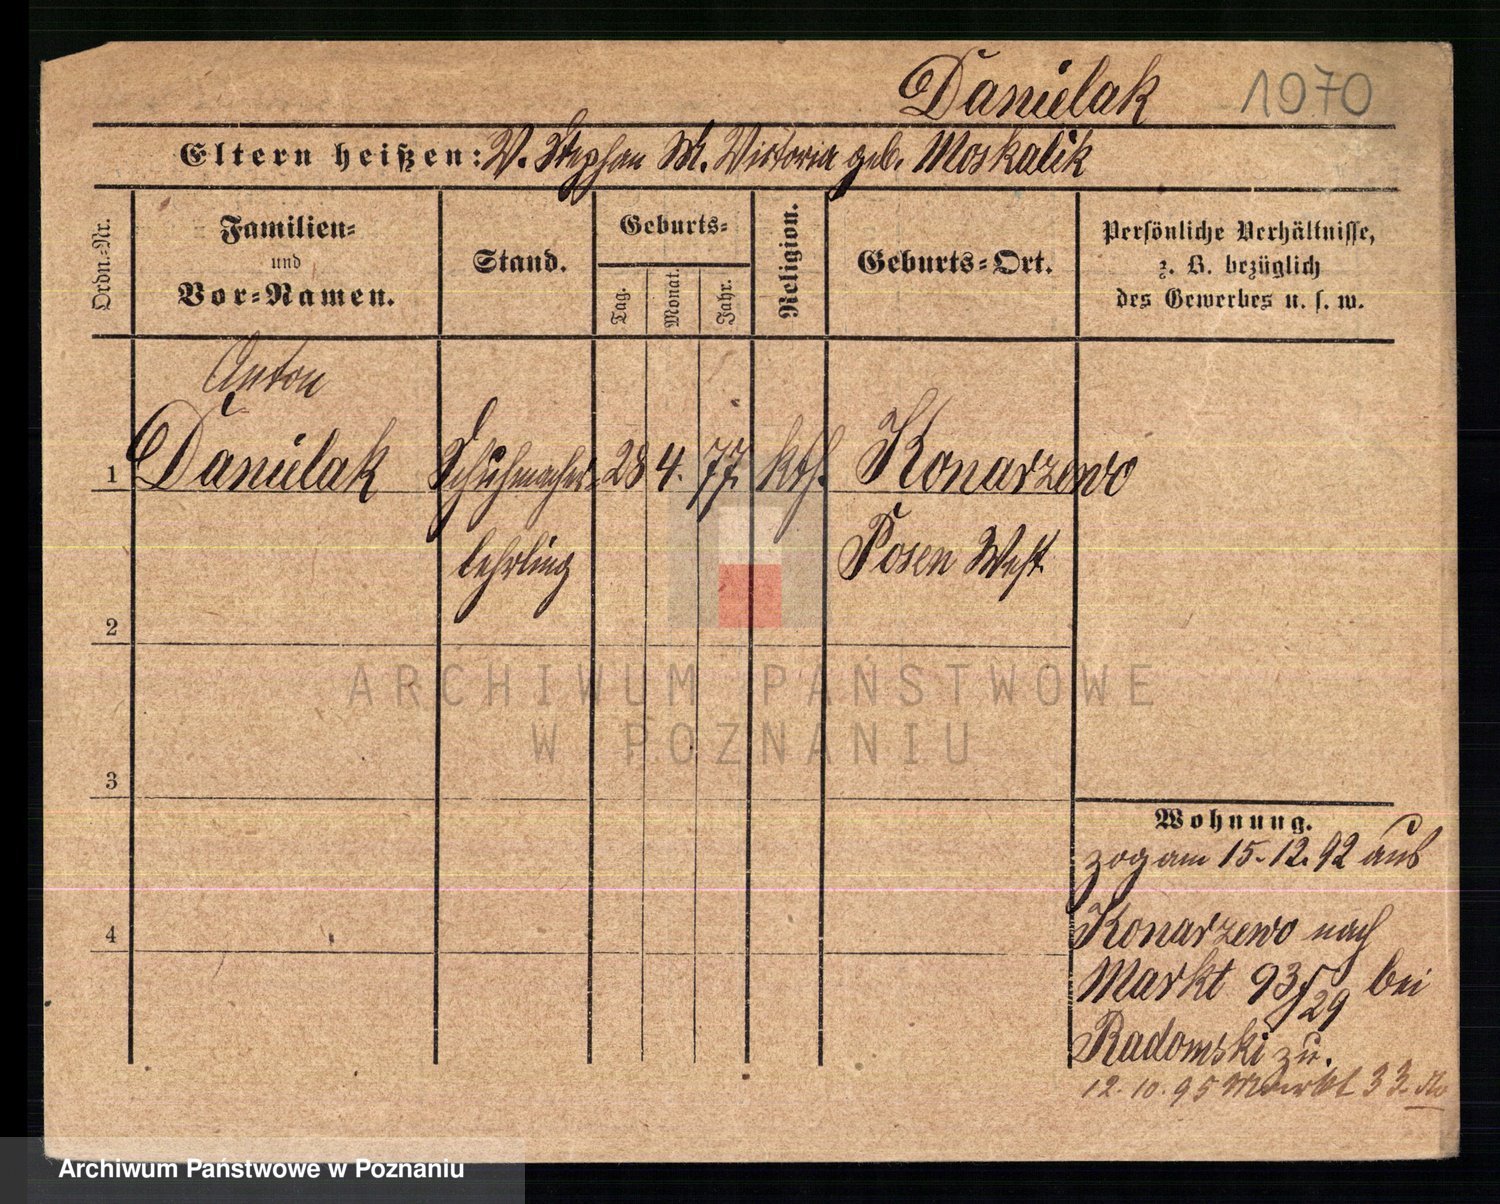 Danielak 1970
Eltern heißen: V. Stephan M. Victoria geb. Moskalik
Ordn.-Nr.
Familien-
und
Vor-Namen.
Stand.
Geburts-
Tag.
Monat.
Jahr.
Religion.
Geburts-Ort.
Persönliche Verhältnisse,
z. B. bezüglich
des Gewerbes u. s. w.
Anton
1 Danielak Schuhmacher- 28 4. 77. kth. Konarzewo
lehrling Posen West
2
ARCHIWUM PAŃSTWOWE
W POZNANIU
3
Wohnung.
zog am 15.12.92 aus
4 Konarzewo nach
Markt 93/29 bei
Radomski zu.
12.10.95 Markt 33.
Archiwum Państwowe w Poznaniu